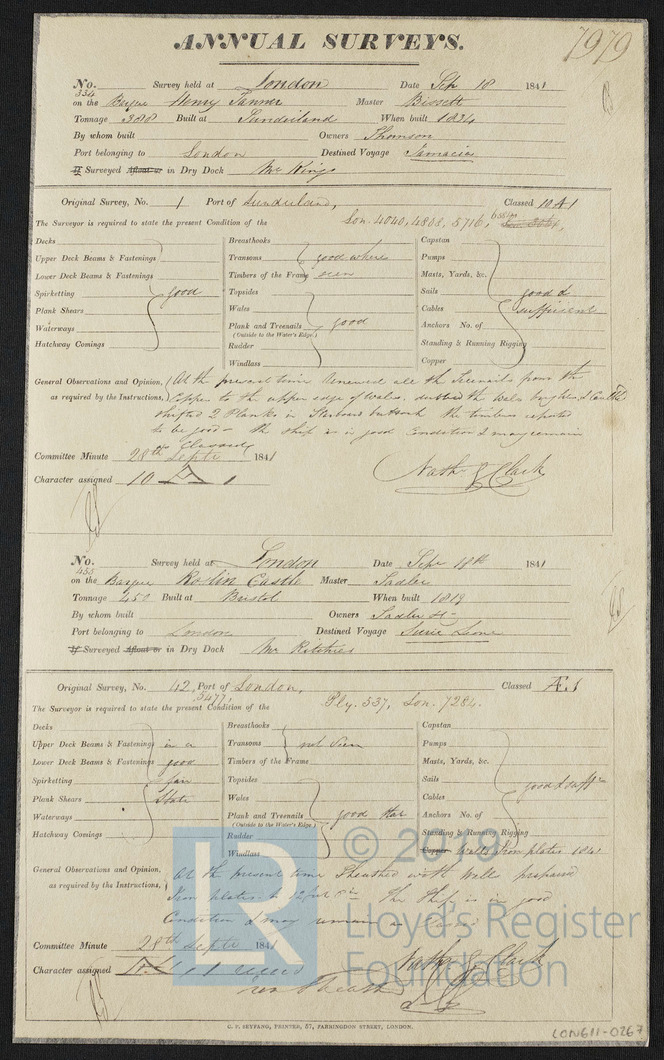 ANNUAL SURVEYS.
7979
No. 334 Survey held at London Date Sep 18 1841
on the Barque Henry Tanner Master Bissett
Tonnage 388 Built at Sunderland When built 1834
By whom built Owners Thomson
Port belonging to London Destined Voyage Jamaica
If Surveyed Afloat or in Dry Dock Mr Kings
Original Survey, No. 1 Port of Sunderland, Classed 10 A 1
The Surveyor is required to state the present Condition of the Lon. 4040, 4808, 5716,
Decks
Upper Deck Beams & Fastenings
Lower Deck Beams & Fastenings
Spirketting good
Plank Shears
Waterways
Hatchway Comings
Breasthooks
Transoms good where
Timbers of the Frame seen
Topsides
Wales
Plank and Treenails good
(Outside to the Water's Edge.)
Rudder
Windlass
Capstan
Pumps
Masts, Yards, &c.
Sails good &
Cables sufficient
Anchors No. of
Standing & Running Rigging
Copper
General Observations and Opinion, At the present time renewed all the Treenails from the
as required by the Instructions, Copper to the upper edge of Wales, the Wales &
shifted 2 Planks in Starboard buttock the timbers reported
to be good - the ship is in good Condition & may remain
as Classed
Committee Minute 28th Septr 1841
Character assigned 10 A 1
Nathl G Clark
No. 455 Survey held at London Date Sepr 18th 1841
on the Barque Roslin Castle Master Sadler
Tonnage 450 Built at Bristol When built 1819
By whom built Owners Sadler &
Port belonging to London Destined Voyage Sierra Leone
If Surveyed Afloat or in Dry Dock Mr Ritchies
Original Survey, No. 42, Port of London, Classed Æ 1
5477,
The Surveyor is required to state the present Condition of the Ply. 537, Lon. 7282.
Decks
Upper Deck Beams & Fastenings in a
Lower Deck Beams & Fastenings good
Spirketting fair
Plank Shears State
Waterways
Hatchway Comings
Breasthooks
Transoms not seen
Timbers of the Frame
Topsides
Wales
Plank and Treenails good
(Outside to the Water's Edge.)
Rudder
Windlass
Capstan
Pumps
Masts, Yards, &c.
Sails good & suff
Cables
Anchors No. of
Standing & Running Rigging
Copper Iron plates 1841
General Observations and Opinion, At the present time Sheathed with prepared
as required by the Instructions, Iron plates to 12 feet The Ship is in good
Condition & may remain as
Committee Minute 28th Septr 1841
Character assigned Æ 1
Nathl G Clark
© 2019
LR
Lloyd's Register
Foundation
G. F. SEYFANG, PRINTER, 57, FARRINGDON STREET, LONDON.
LON611-0267